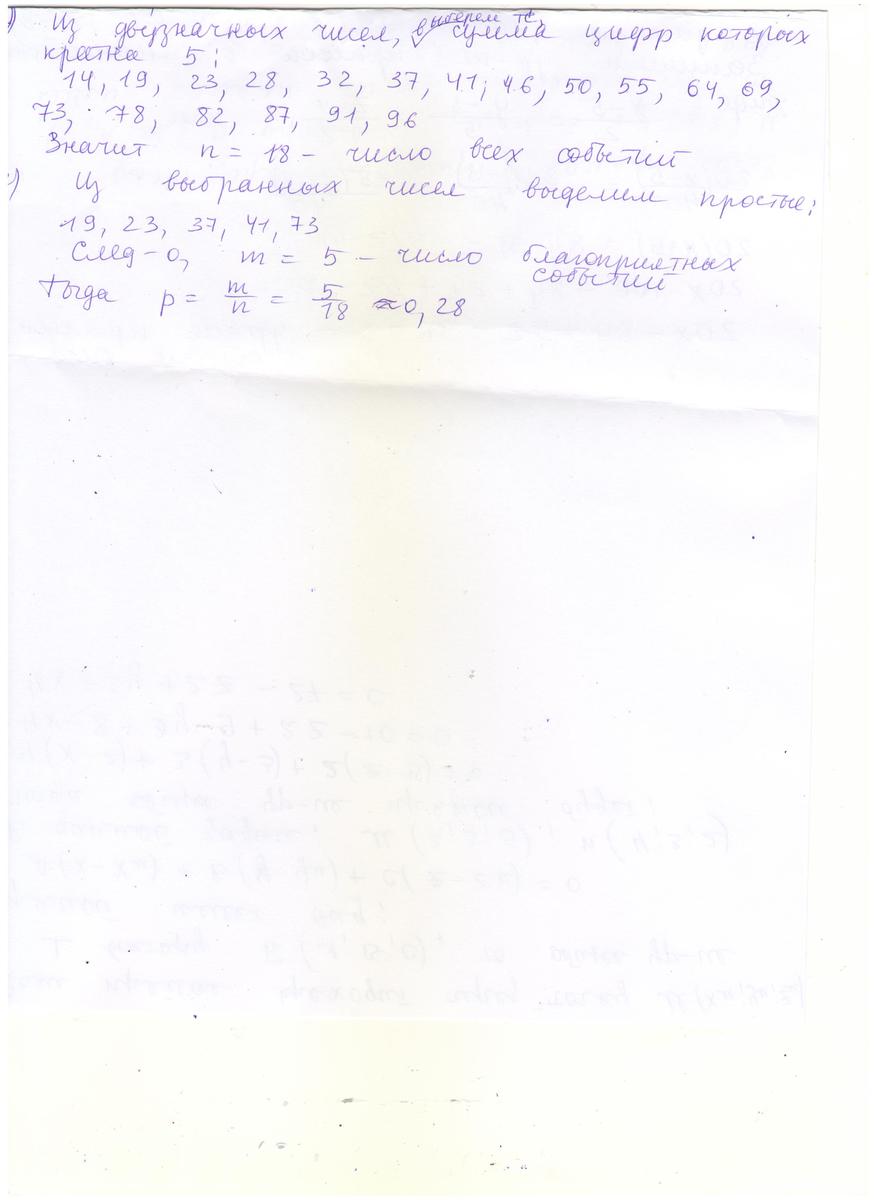 ) Из двузначных чисел, выберем те, сумма цифр которых
кратна 5:
14, 19, 23, 28, 32, 37, 41; 46, 50, 55, 64, 69,
73, 78, 82, 87, 91, 96
Значит n = 18 - число всех событий
) Из выбранных чисел выделим простые:
19, 23, 37, 41, 73
След-о, m = 5 - число благоприятных
событий
Тогда p = m/n = 5/18 ≈ 0,28